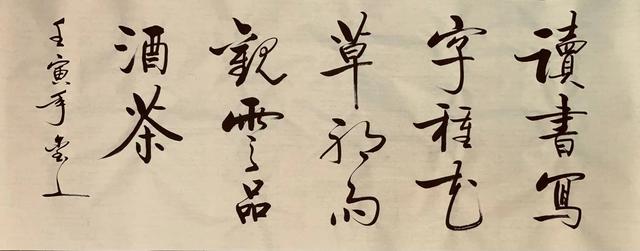 讀書寫
字種花
草聽雨
觀雲品
酒茶
壬寅年